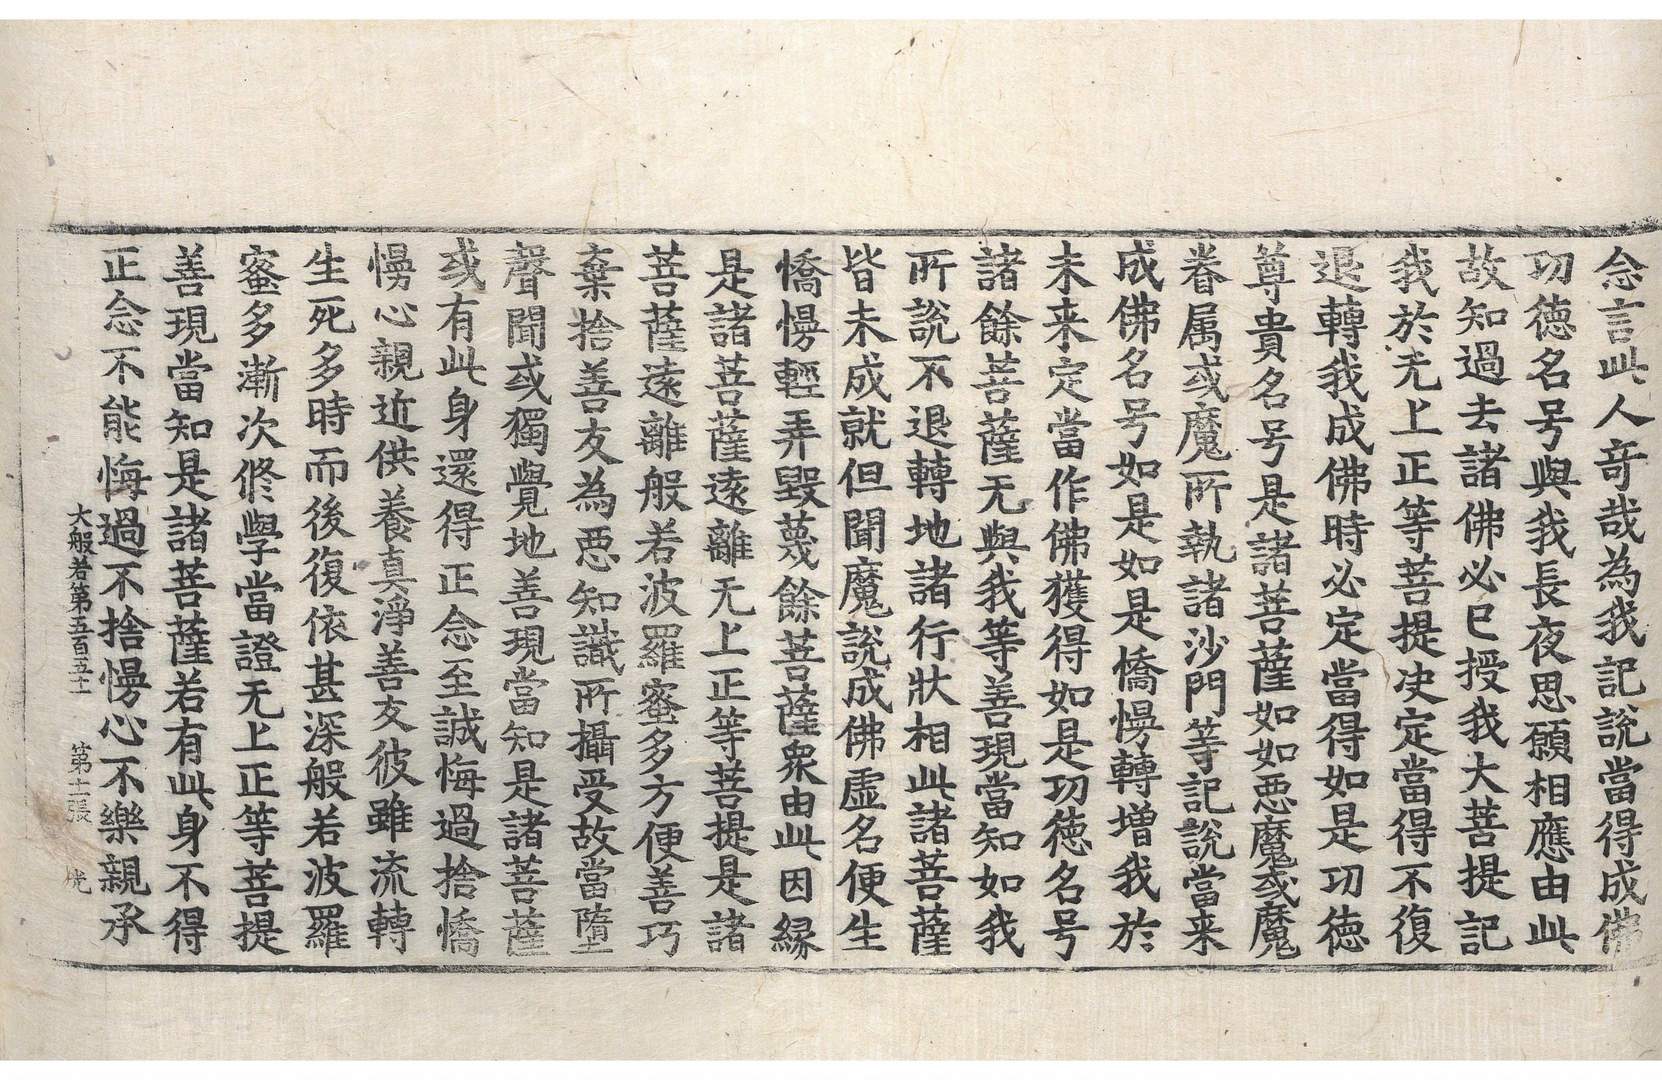 念言此人奇哉為我記說當得成佛
功德名号與我長夜思願相應由此
故知過去諸佛必已授我大菩提記
我於无上正等菩提决定當得不復
退轉我成佛時必定當得如是功德
尊貴名号是諸菩薩如如惡魔或魔
眷属或魔所執諸沙門等記說當来
成佛名号如是如是憍慢轉增我於
未来定當作佛獲得如是功德名号
諸餘菩薩无與我等善現當知如我
所說不退轉地諸行狀相此諸菩薩
皆未成就但聞魔說成佛虛名便生
憍慢輕弄毀蔑餘菩薩衆由此因縁
是諸菩薩遠離无上正等菩提是諸
菩薩遠離般若波羅蜜多方便善巧
棄捨善友為惡知識所攝受故當墮
聲聞或獨覺地善現當知是諸菩薩
或有此身還得正念至誠悔過捨憍
慢心親近供養真淨善友彼雖流轉
生死多時而後復依甚深般若波羅
蜜多漸次修學當證无上正等菩提
善現當知是諸菩薩若有此身不得
正念不能悔過不捨慢心不樂親承
大般若第五百五十 第十一張 光